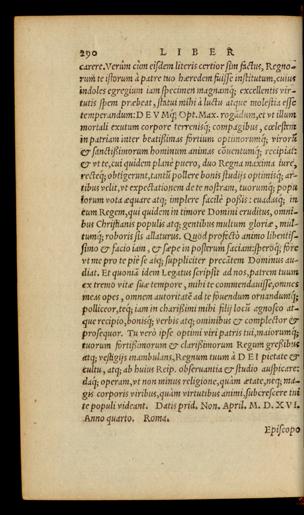 290 LIBER
carere. Verùm cùm eisdem literis certior sim factus, Regno-
rum te istorum à patre tuo hæredem fuisse institutum, cuius
indoles egregium iam specimen magnamq; excellentis vir-
tutis spem præbeat, statui mihi à luctu atque molestia esse
temperandum: DEVMq; Opt. Max. rogãdum, et vt illum
mortali exutum corpore terrenisq; compagibus, cælestem
in patriam inter beatissimas fortium optimorumq; virorũ
& sanctissimorum hominum animas cõuenientium; recipiat:
& vt te, cui quidem planè puero, duo Regna maxima iure,
recteq; obtigerunt, tantũ pollere bonis studijs optimisq; ar-
tibus velit, vt expectationem de te nostram, tuorumq; popu
lorum vota æquare atq; implere facilè possis: euadasq; in
eum Regem, qui quidem in timore Domini eruditus, omni-
bus Christianis populis atq; gentibus multum gloriæ, mul-
tumq; roboris sis allaturus. Quod profectò animo libentis-
simo & facio iam, & sæpe in posterum faciam: speroq; fore
vt me pro te piè se atq; suppliciter precãtem Dominus au-
diat. Et quoniã idem Legatus scripsit ad nos, patrem tuum
extremo vitæ suæ tempore, mihi te commendauisse, omnes
meas opes, omnem autoritatẽ ad te fouendum ornandumq;
polliceor, teq; iam in charissimi mihi filij locũ agnosco at-
que recipio, bonisq; verbis atq; ominibus & complector &
prosequor. Tu verò ipse optimi viri patris tui, maiorumq;
tuorum fortissimorum & clarissimorum Regum gressibus
atq; vestigijs inambulans, Regnum tuum à DEI pietate &
cultu, atq; ab huius Reip. obseruantia & studio auspicare:
daq; operam, vt non minus religione, quàm ætate, neq; ma-
gis corporis viribus, quàm virtutibus animi, subcrescere tui
te populi videant. Datis prid. Non. April. M. D. XVI.
Anno quarto. Romæ.
Episcopo